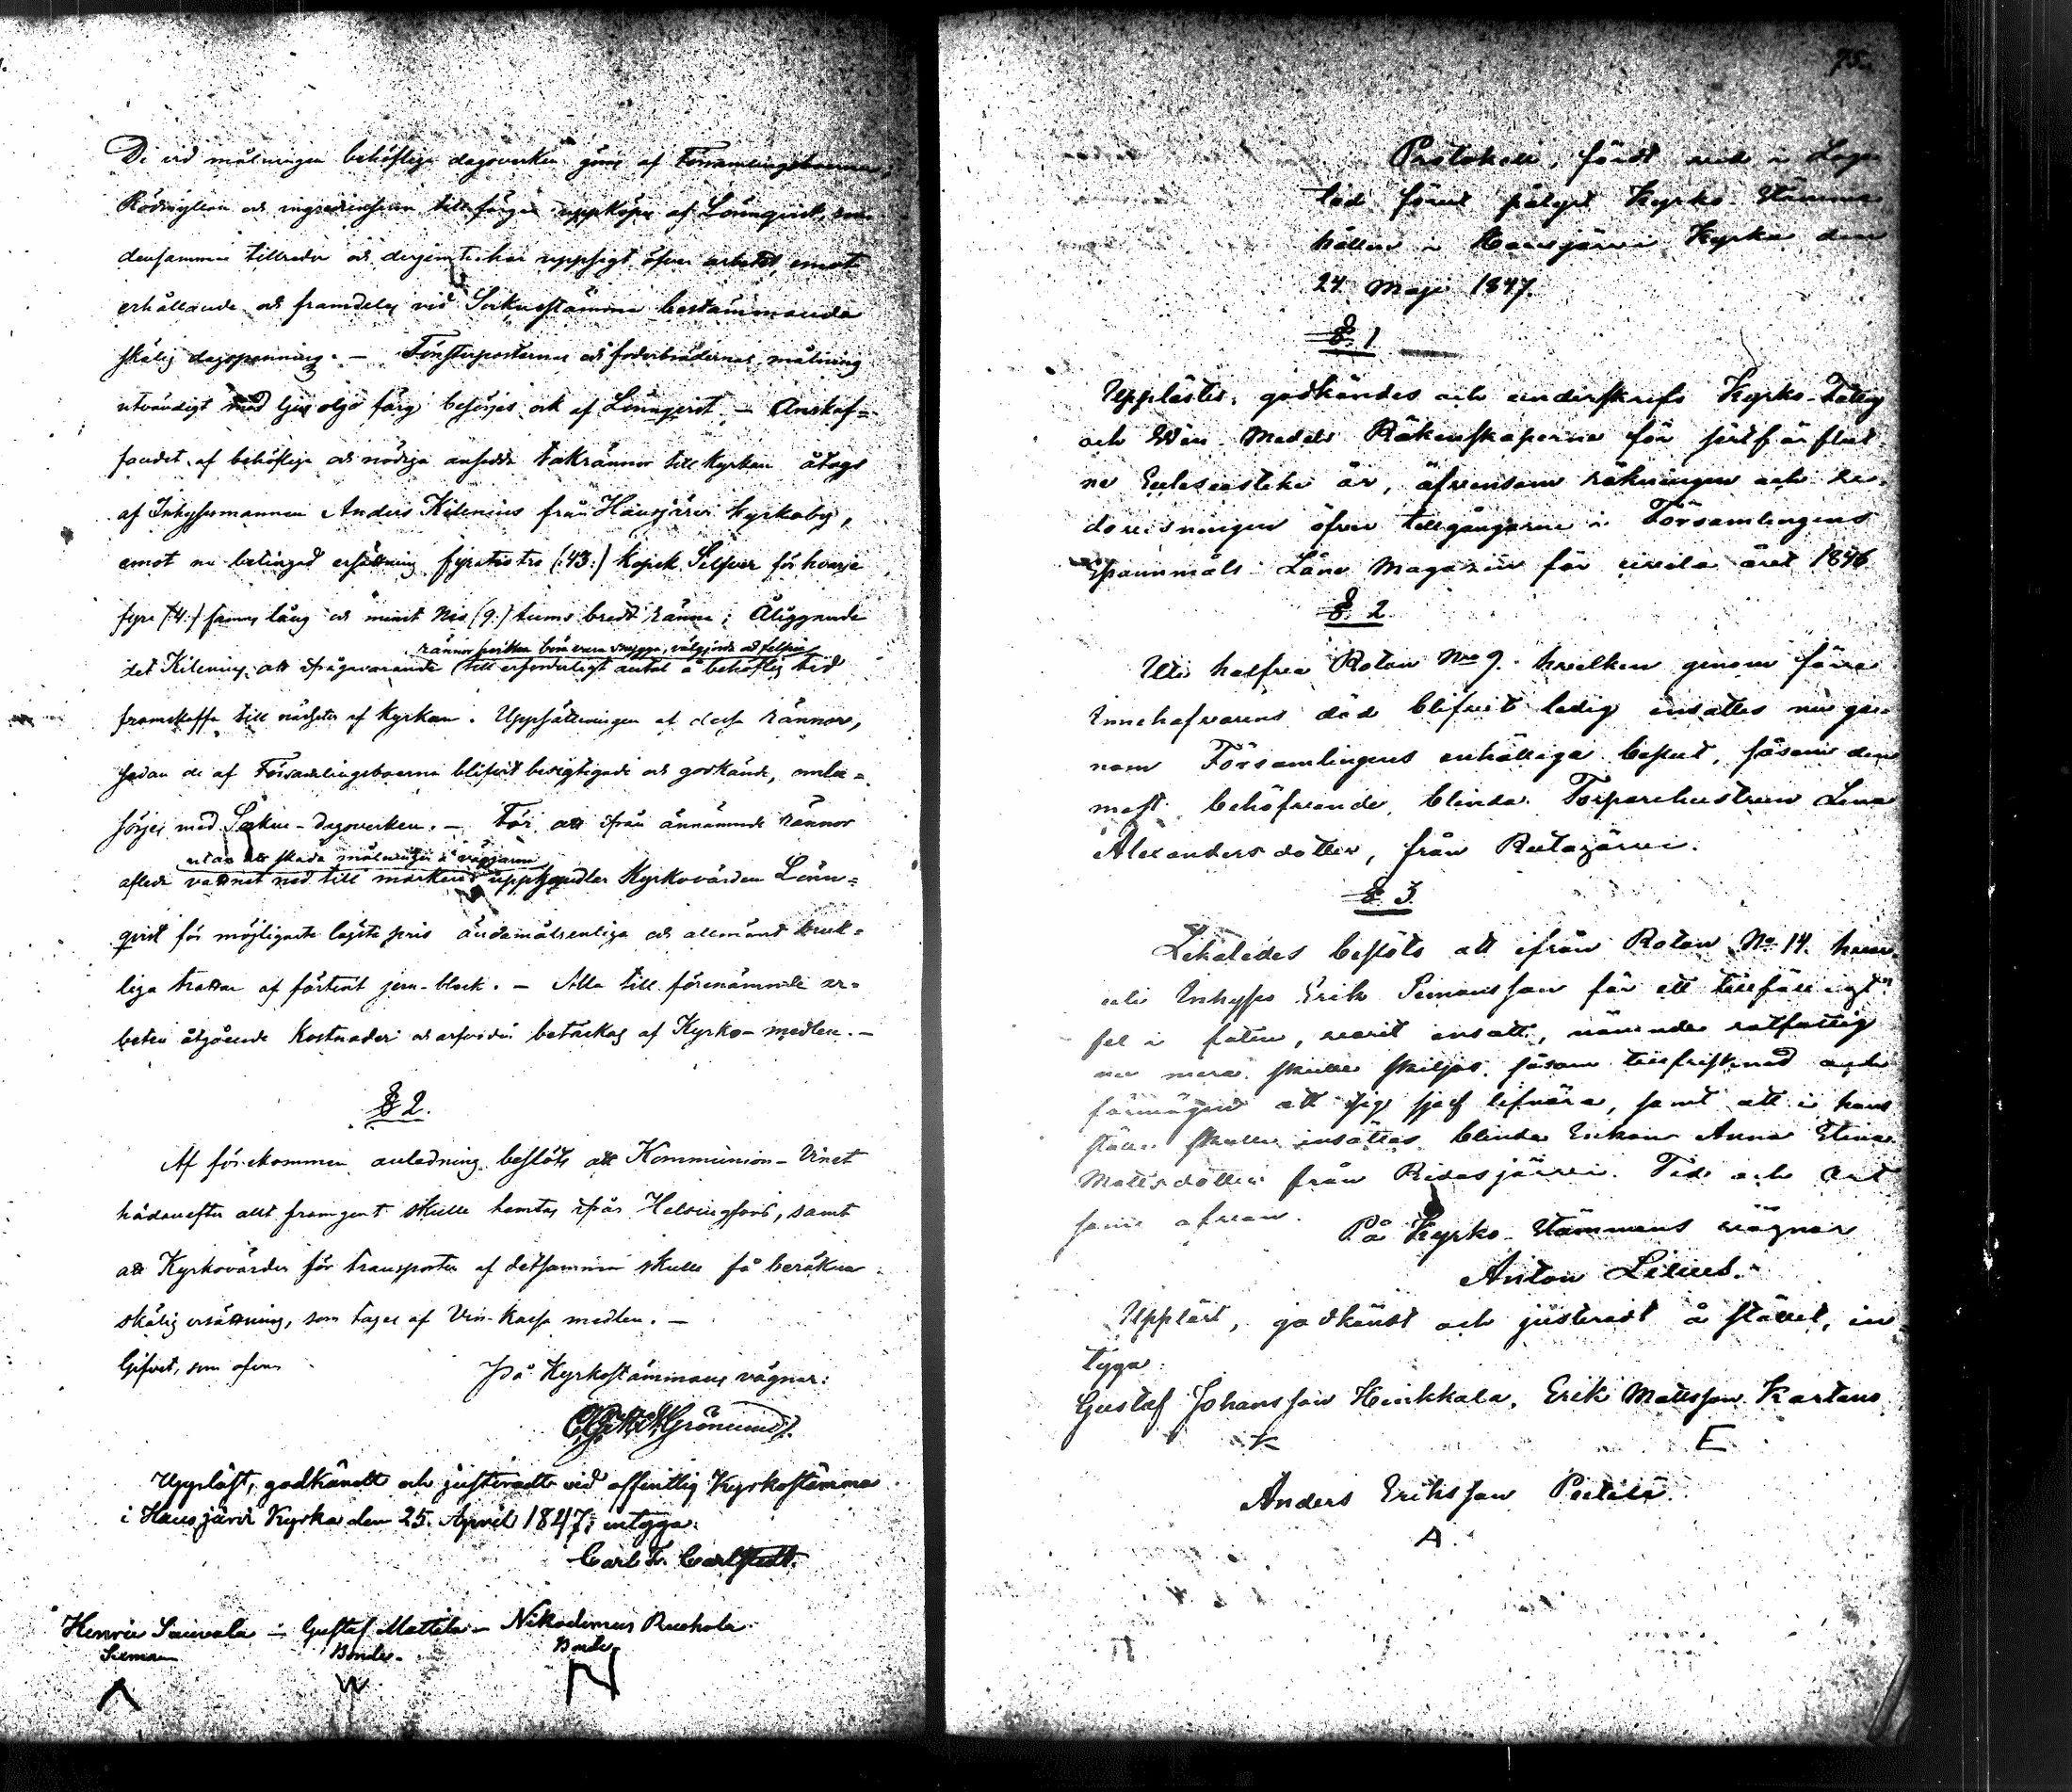 De vid målningen behöflige dagsverken göres af Församlingsboerne,
Rödmyllan och ingredienserne till färgen uppköpes af Lönnqvist, som
densamma tillreder och derjemte har uppsigt öfver arbetet, emot
erhållande och framdeles vid Sockenstämma bestämmande
skälig dagspenning. – Fönsterposternas och foderbrädernas målning
utvändigt med ljus oljefärg besörjes ock af Lönnqvist. – Anskaf=
fandet af behöflige och nödige ansedde takrännor till Kyrkan åtogs
af Inhysesmannen Anders Kilenius från Hausjärvi Kyrkoby,
emot nu betingad ersättning fyratiotre (:43:) kopek Silfver för hvarje
fyra (:4:) famns lång och minst nio (:9:) tums bredt ränna; Åliggande
rännor hvilka böra vara snygga, välgjorda och felfria
det Kilenius, att ifrågavarande till erforderligt antal å behöflig tid
framskaffa till närheten af Kyrkan. Uppsättningen af dessa rännor,
sedan de af Församlingsboerne blifvit besigtigade och godkände, ombe=
sörjes med Sockne-dagsverken. – För att ifrån ännämnde rännor
utan att skada målningen å väggarne
aflede vattnet ned till marken upphandlar Kyrkovärden Lönn=
qvist för möjligaste lägsta pris ändamålsenliga och allmänt bruk=
liga trattar af förtent jern-bleck. – Alla till förenämnde ar=
beten åtgående kostnader och arfvoden betäckas af Kyrko-medlen. –
§ 2.
Af förekommen anledning beslöts att Kommunion-Vinet
hädanefter allt framgent skulle hemtas ifrån Helsingfors, samt
att Kyrkovärden för transporten af detsamma skulle få beräkna
skälig ersättning, som tages af Vin-kassa medlen. –
Gifvet, som ofvan
På Kyrkostämmans vägnar:
Grönlund.
Uppläst, godkändt och justeradt vid offentlig Kyrkostämma
i Hausjärvi Kyrka den 25. April 1847; intyga:
Carl F. Carlstedt.
Henric Sauvala – Gustaf Mattila – Nikodemus Ruohola
Bonde. Bonde
N
75.
Protokoll, fördt vid i Laga
tid förut pålyst Kyrko-Stämma
hållen i Hausjärvi Kyrka den
24 Maji 1847.
§. 1.
Upplästes, godkändes och underskrefs Kyrko-Fattig
och Win-Medels Räkenskaperne för sistförflut
ne Ecclesiastika år, äfvensom räkningen och re-
dovisningen öfver tillgångarne i Församlingens
Spannmåls Låne Magazin för civila året 1846.
§. 2.
Uti halfva Rotan No 9. hvilken genom förra
Innehafvarens död blifvit ledig insattes nu ge-
nom Församlingens enhälliga beslut, såsom den
mest behöfvande, blinda Torparehustrun Lena
Alexandersdotter, från Rutajärvi.
§. 3.
Likaledes beslöts att ifrån Rotan No 14. hvar-
uti Inhyses Erik Simonsson för ett tillfälligt
fel i foten, varit insatt, nämnde rotfattig
nu mera skulle skiljas, såsom tillfrisknad och
förmögen att sig sjelf lifnära, samt att i hans
ställe skulle insättas blinda Enkan Anna Stina
Mattsdotter från Ridasjärvi. Tid och Ort
som ofvan.
På Kyrko-Stämmans vägnar
Anton Lilius.
Uppläst, godkändt och justeradt å stället, in-
tyga:
Gustaf Johansson Heikkala, Erik Mattsson Kartano
K E
Anders Eriksson Pietilä.
A.